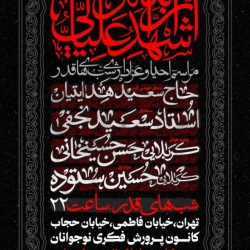 اشهد
علی
مراسم احیا و عزاداری شب‌های قدر
حاج سعید هدایتیان
استاد سعید نجفی
کربلایی حسن حسینخانی
کربلایی حسین ستوده
شب‌های قدر، ساعت ۲۲
تهران، خیابان فاطمی، خیابان حجاب
کانون پرورش فکری نوجوانان